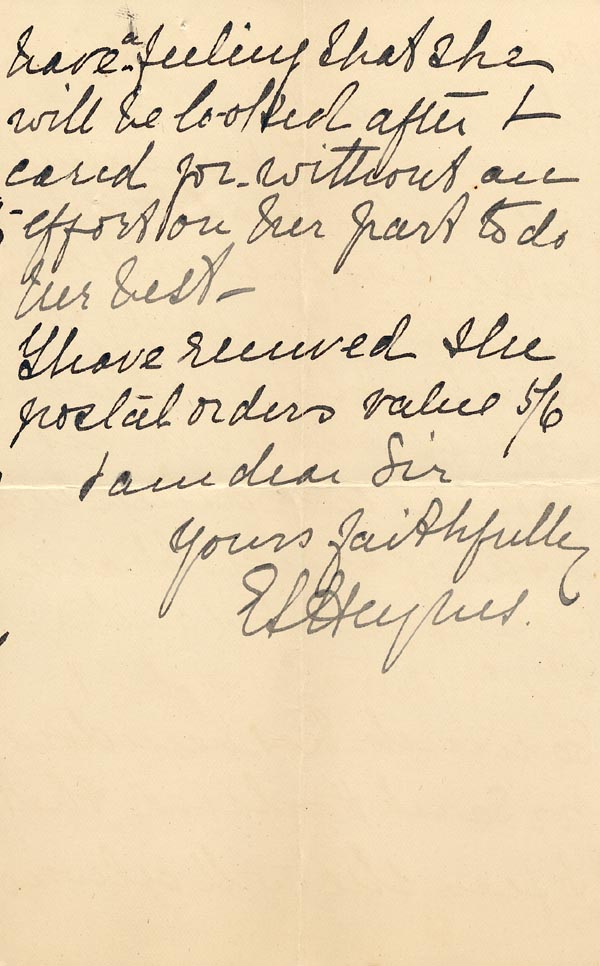 have a feeling that she
will be looked after &
cared for without an
effort on her part to do
her best –
I have received the
postal orders value 5/6
I am dear Sir
Yours faithfully